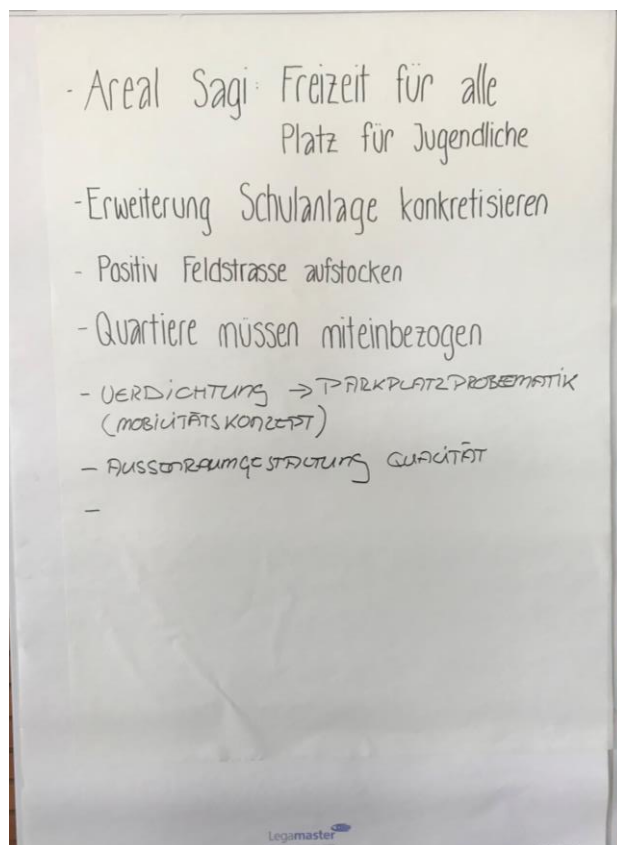 - Areal Sagi: Freizeit für alle
Platz für Jugendliche
- Erweiterung Schulanlage konkretisieren
- Positiv Feldstrasse aufstocken
- Quartiere müssen miteinbezogen
- VERDICHTUNG → PARKPLATZPROBLEMATIK
(MOBILITÄTSKONZEPT)
- AUSSENRAUMGESTALTUNG QUALITÄT
-
Legamaster